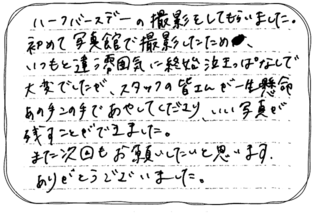 ハーフバースデーの撮影をしてもらいました。
初めて写真館で撮影したため、
いつもと違う雰囲気に終始泣きっぱなしで
大変でしたが、スタッフの皆さんが一生懸命
あの手この手であやしてくださり、いい写真が
残すことができました。
また次回もお願いしたいと思います。
ありがとうございました。